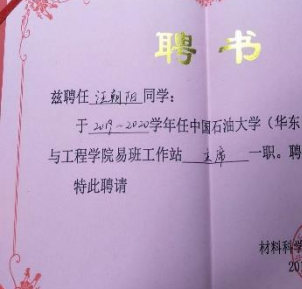 聘书
兹聘任 汪朝阳 同学：
于 2019～2020 学年任中国石油大学（华东
与工程学院易班工作站 主席 一职。聘
特此聘请
材料科学
20